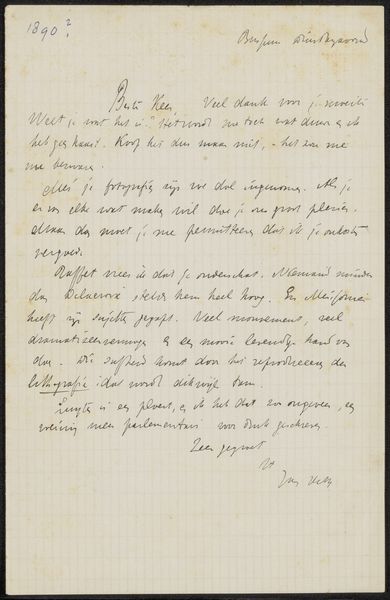 1890?
Bussum Dinsdagavond
Beste Kees Veel dank voor je moeite
Weet je wat het is? Het wordt me toch wat duur en ik
het geen haast. Koop het dus maar niet, - het zou me
me bezwaren.
Met je fotografies zijn we dol ingenomen. Als je
er van elke wat maken wil doe je ons groot plezier.
Maar dan moet je me permitteeren dat ik je onkosten
vergoed.
Raffet vrees ik dat je onderschat. Niemand minder
dan Delacroix stelde hem heel hoog. En Meissonier
heeft zijn sujetten gegapt. Veel mouvement, veel
dramatiseervermogen en een mooie levendige hand van
doen. Die suffheid komt door het reproduceeren der
lithografie: dat wordt dikwijls tam.
is een ploert, en ik heb dat zoo ongeveer, een
weinig meer parlementair voor druk geschreven.
Zeer gegroet
Jan Veth